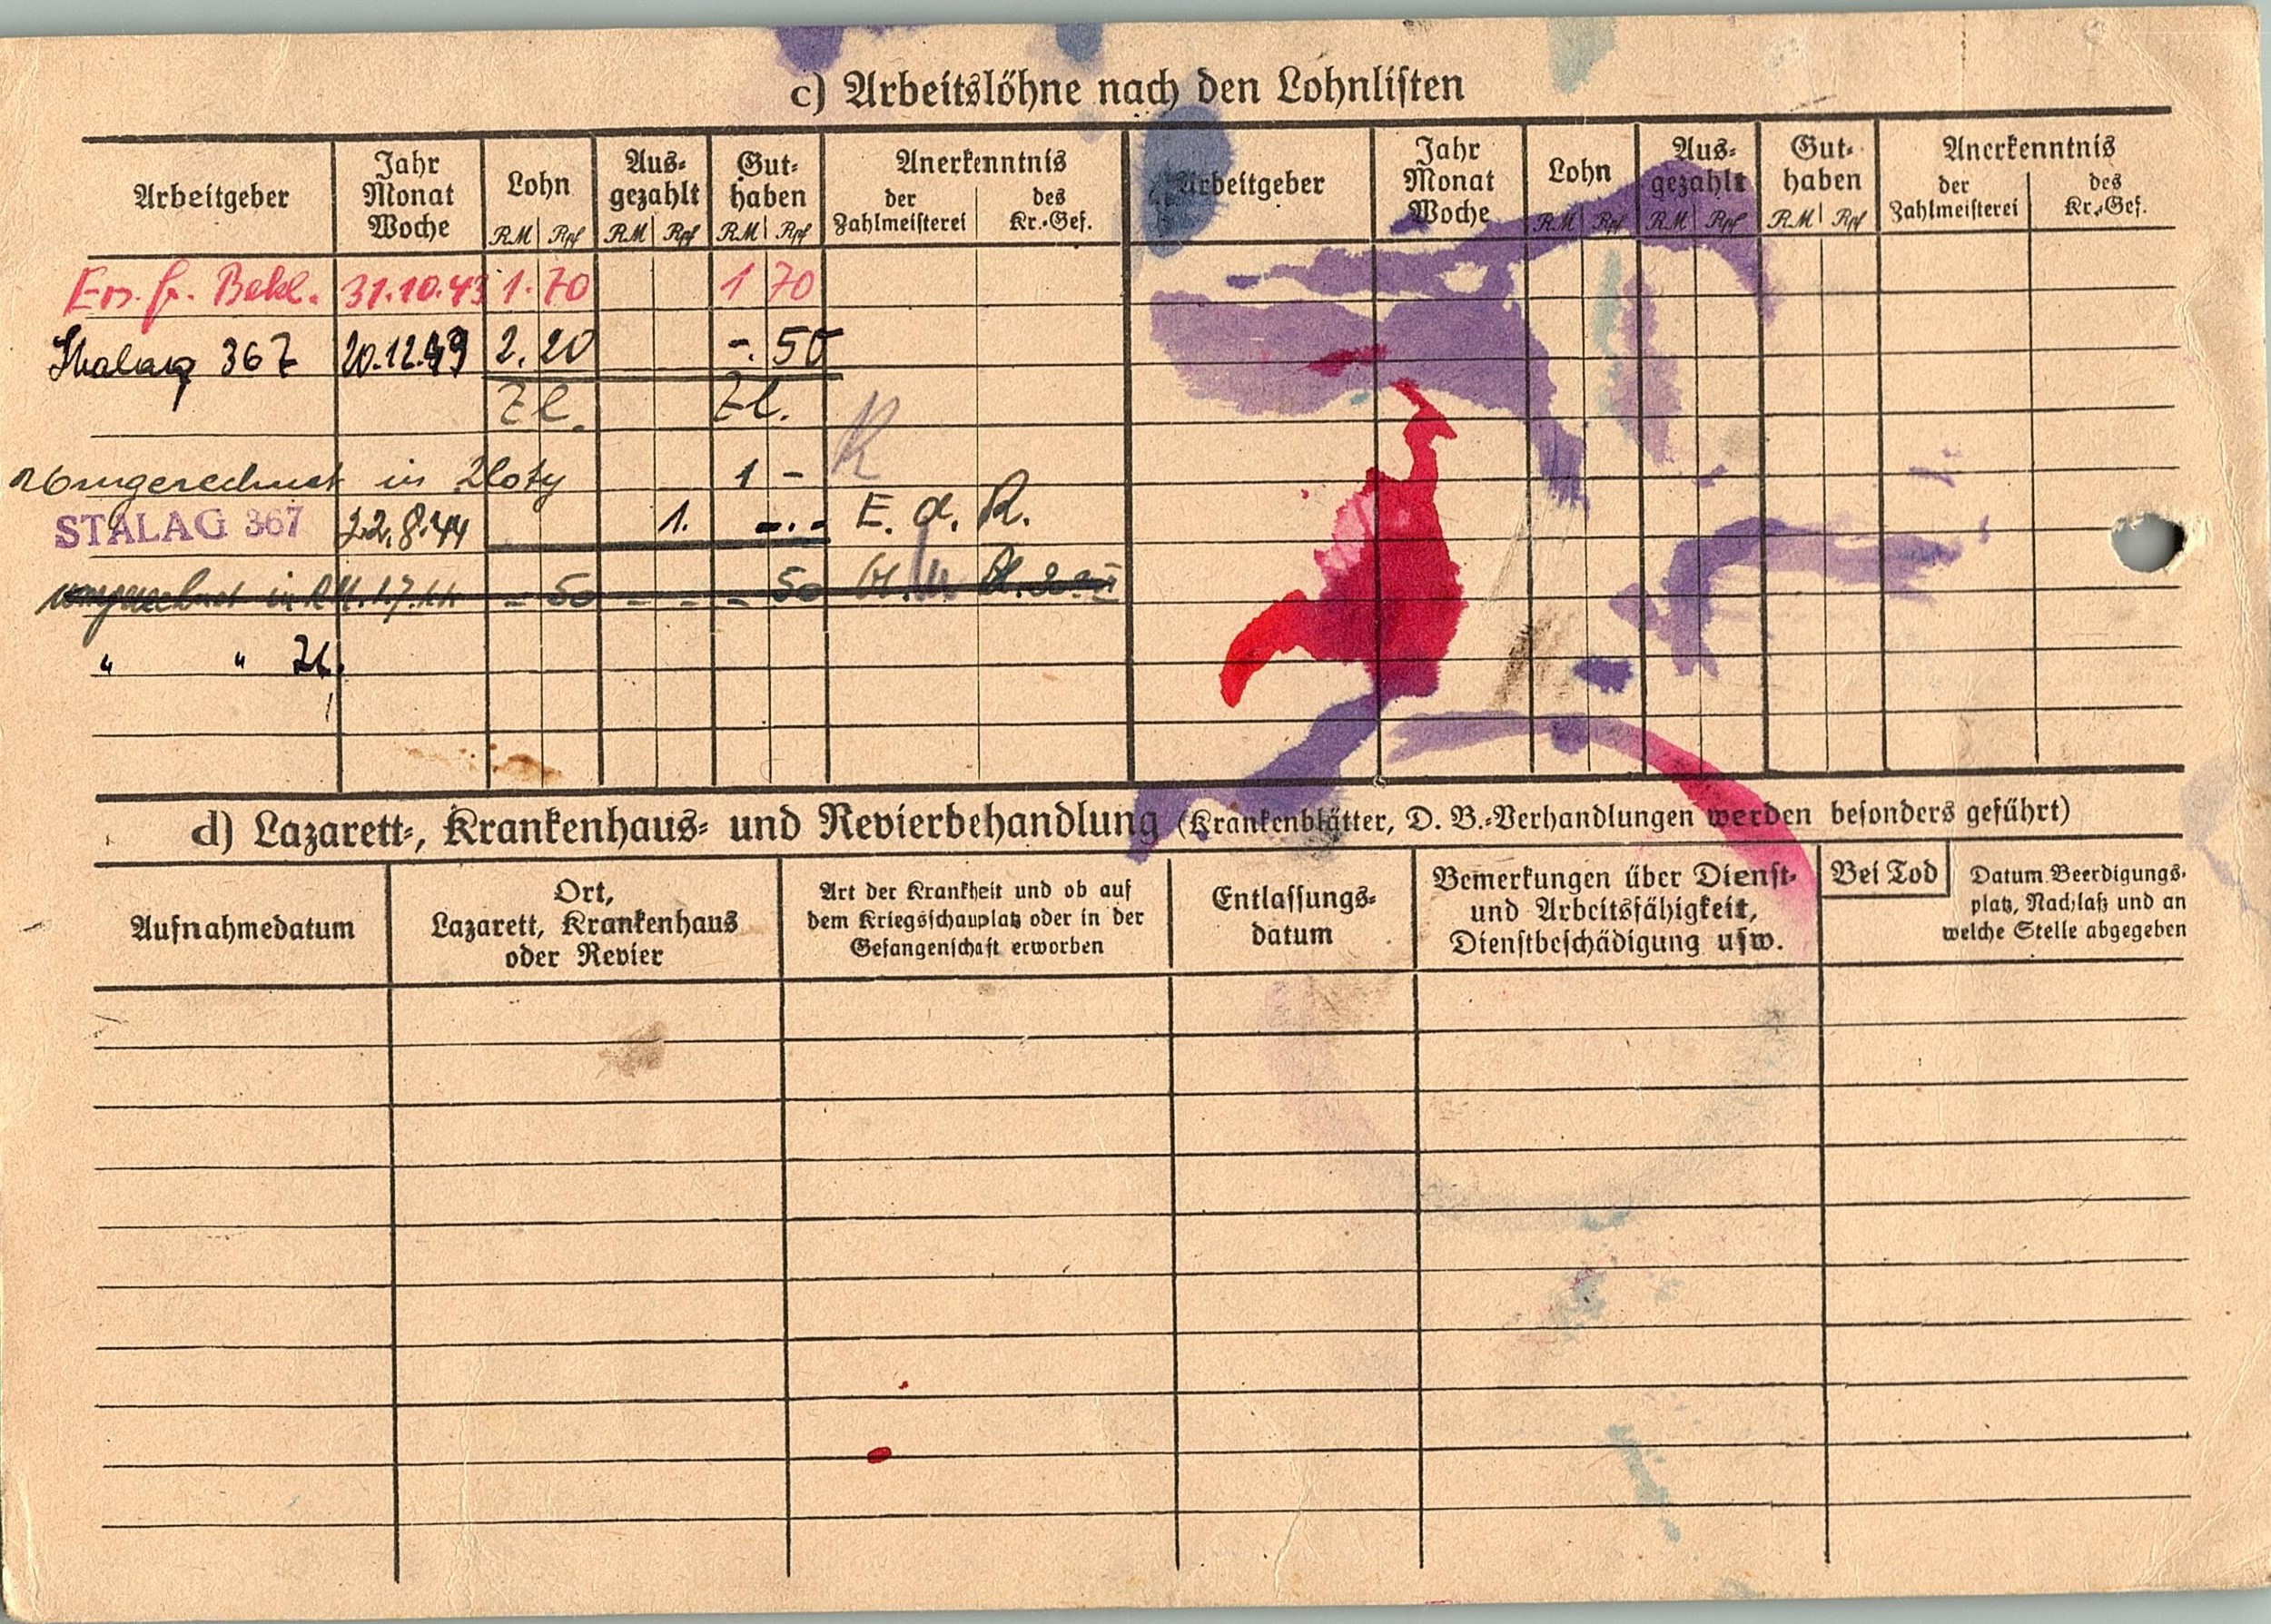 c) Arbeitslöhne nach den Lohnlisten
Arbeitgeber Jahr Monat Woche Lohn RM Rpf Aus- gezahlt RM Rpf Gut- haben RM Rpf Anerkenntnis der Zahlmeisterei des Kr.-Gef. Arbeitgeber Jahr Monat Woche Lohn RM Rpf Aus- gezahlt RM Rpf Gut- haben RM Rpf Anerkenntnis der Zahlmeisterei des Kr.-Gef.
Ers. f. Bekl. 31.10.43 1.70 1 70
Stalag 367 20.12.43 2.20 -.50
Zl. Zl.
Umgerechnet in Zloty 1 -
STALAG 367 22.8.44 1. -.- E. d. R.
umgerechnet in RM. 1.7.44 - 50 - - - 50
" " Zl.
d) Lazarett-, Krankenhaus- und Revierbehandlung (Krankenblätter, D. B.-Verhandlungen werden besonders geführt)
Aufnahmedatum Ort, Lazarett, Krankenhaus oder Revier Art der Krankheit und ob auf dem Kriegsschauplatz oder in der Gefangenschaft erworben Entlassungs- datum Bemerkungen über Dienst- und Arbeitsfähigkeit, Dienstbeschädigung usw. Bei Tod Datum Beerdigungs- platz, Nachlaß und an welche Stelle abgegeben